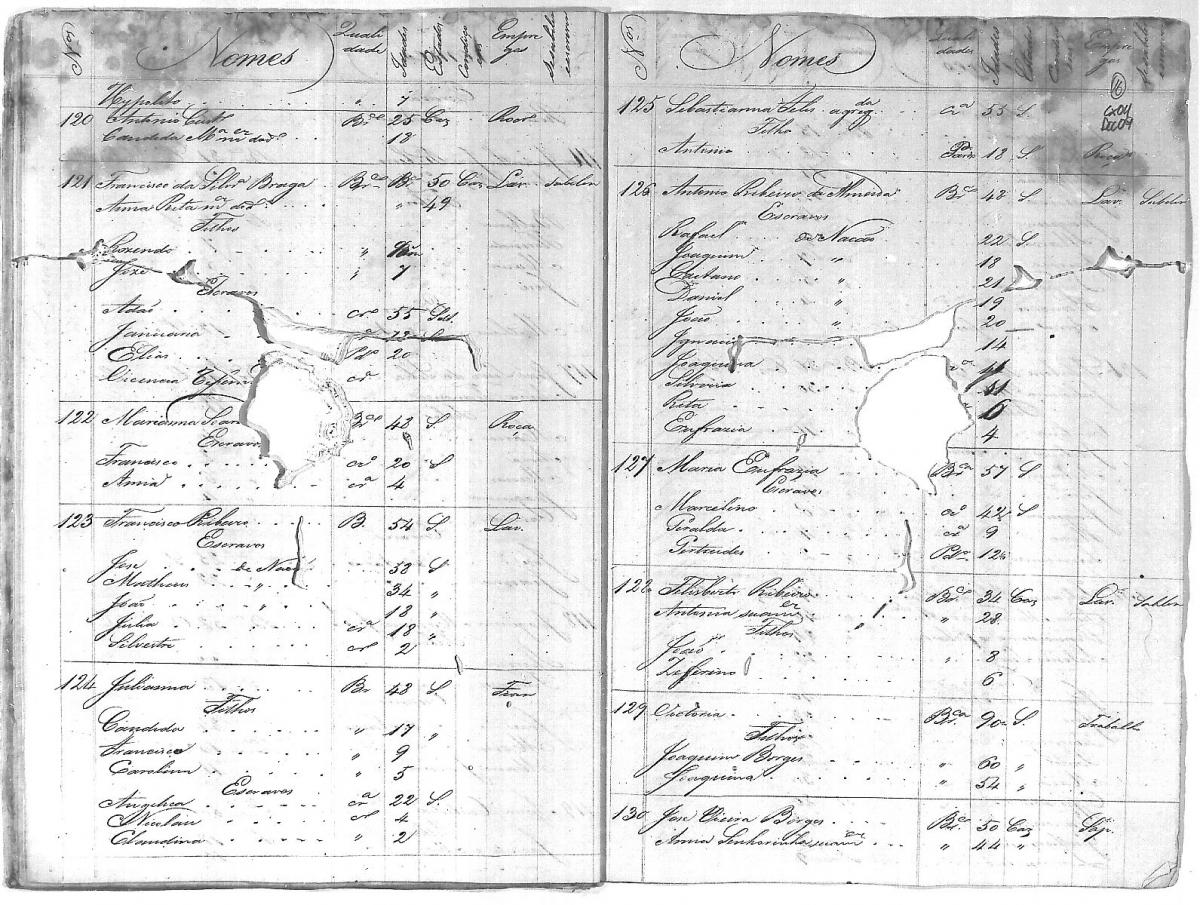 Nos Nomes Qualidade Idades Estados Empregos
Hypolito " 7
120 Antonio Cust Br.co 25 Caz Roca
Candida M.a m.er do d.o 18
121 Francisco da Silv.a Braga Br.co 50 Caz Lav. Sabeler
Anna Rita m.er do d.o " 49
Filhos
Rozendo "
Joze " 7
Escravos
Adão cr.o 55 Solt.
Januaria
Elias Pd.o 20
Vicencia cr.a
122 Mariana Soar Br.a 48 S Roça
Escravos
Francisco cr.o 20 S
Anna cr.a 4
123 Francisco Ribeiro B. 54 S. Lav.
Escravos
Jose de Naca 58 S
Matheus " 34 "
João " 18 "
Julia cr.a 18 "
Silvestre cr.o 2
124 Julianna Br 48 S. Fian
Filhos
Candida " 17 "
Francisco " 9
Carolina " 5
Escravos
Angelica cr.a 22 S.
Nicolau cr.o 4
Claudina " 2
Nos Nomes Qualidades Idades Estados Empregos
16
CX04
Doc04
125 Sebastianna agreg.da cr.a 55 S.
Filho
Antonio Pardo 18 S. Roça
126 Antonio Ribeiro de Almeida Br.o 48 S. Lav. Sabeler
Escravos
Rafael de Nacão 22 S.
Joaquim " 18
Caetano " 21
Daniel " 19
João " 20
Ignacio 14
Joaquina
Silveria
Rita
Eufrazia 4
127 Maria Eufrazia Br.ca 57 S
Escravos
Marcelino cr.o 42 S
Geralda cr.a 9
Gertrudes Pd.a 12
128 Filisberto Ribeiro Br.o 34 Caz Lav. Sabler
Antonia sua m.er " 28
Filhos
João " 8
Zeferino 6
129 Victoria Br.ca 90 S. Trabalha
Filhos
Joaquim Borges " 60 "
Joaquina " 54 "
130 Jose Vieira Borges Br.co 50 Caz Sap.
Anna Senhorinha sua m.er " 44 "